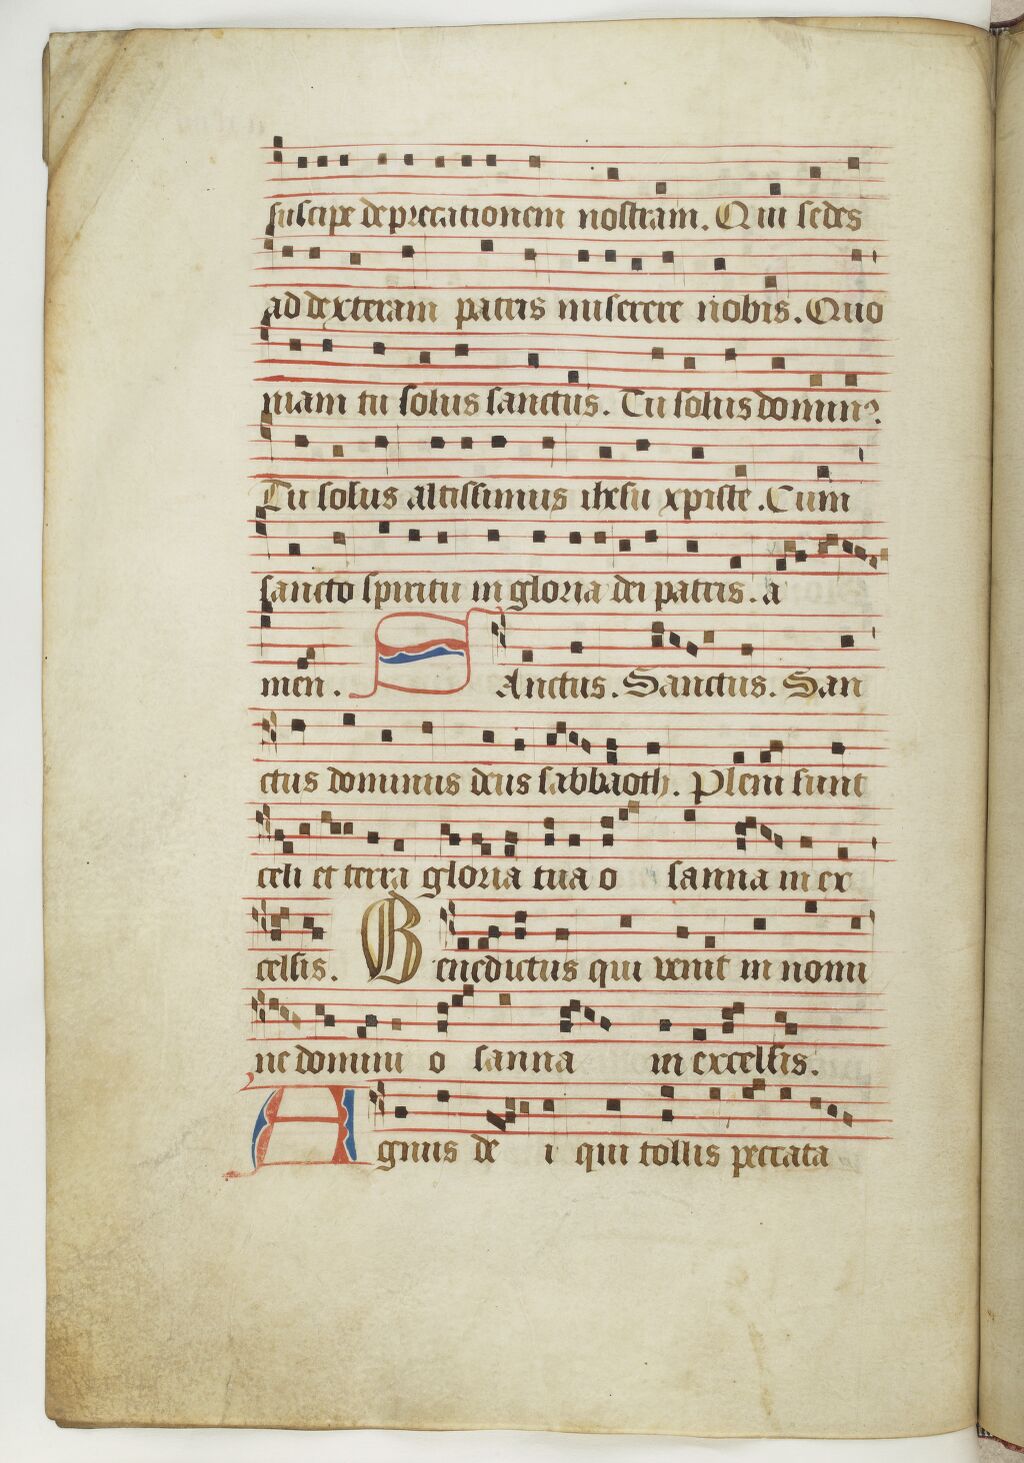 suscipe deprecationem nostram. Qui sedes
ad dexteram patris miserere nobis. Quo
niam tu solus sanctus. Tu solus dominꝰ.
Tu solus altissimus ihesu xpiste. Cum
sancto spiritu in gloria dei patris. a
men. SAnctus. Sanctus. San
ctus dominus deus sabbaoth. Pleni sunt
celi et terra gloria tua o sanna in ex
celsis. Benedictus qui venit in nomi
ne domini o sanna in excelsis.
Agnus de i qui tollis peccata